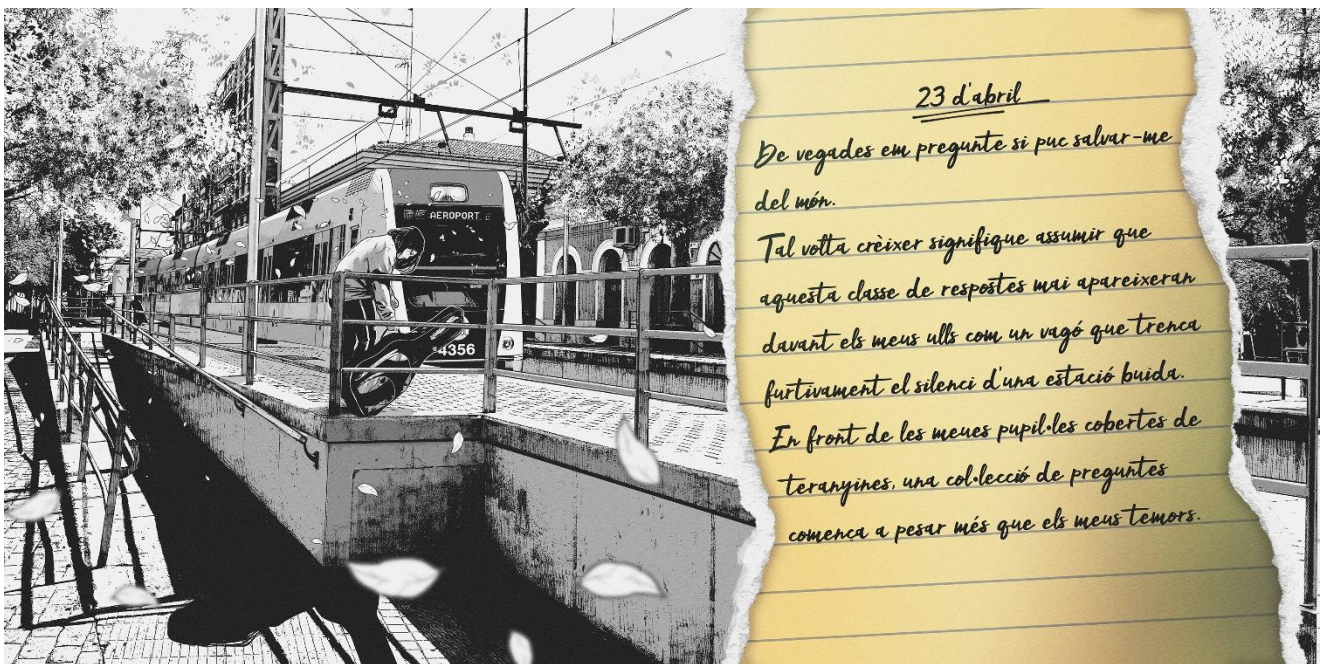 AEROPORT
4356
23 d'abril
De vegades em pregunte si puc salvar-me
del món.
Tal volta crèixer signifique assumir que
aquesta classe de respostes mai apareixeran
davant els meus ulls com un vagó que trenca
furtivament el silenci d'una estació buida.
En front de les meues pupil·les cobertes de
teranyines, una col·lecció de preguntes
comença a pesar més que els meus temors.